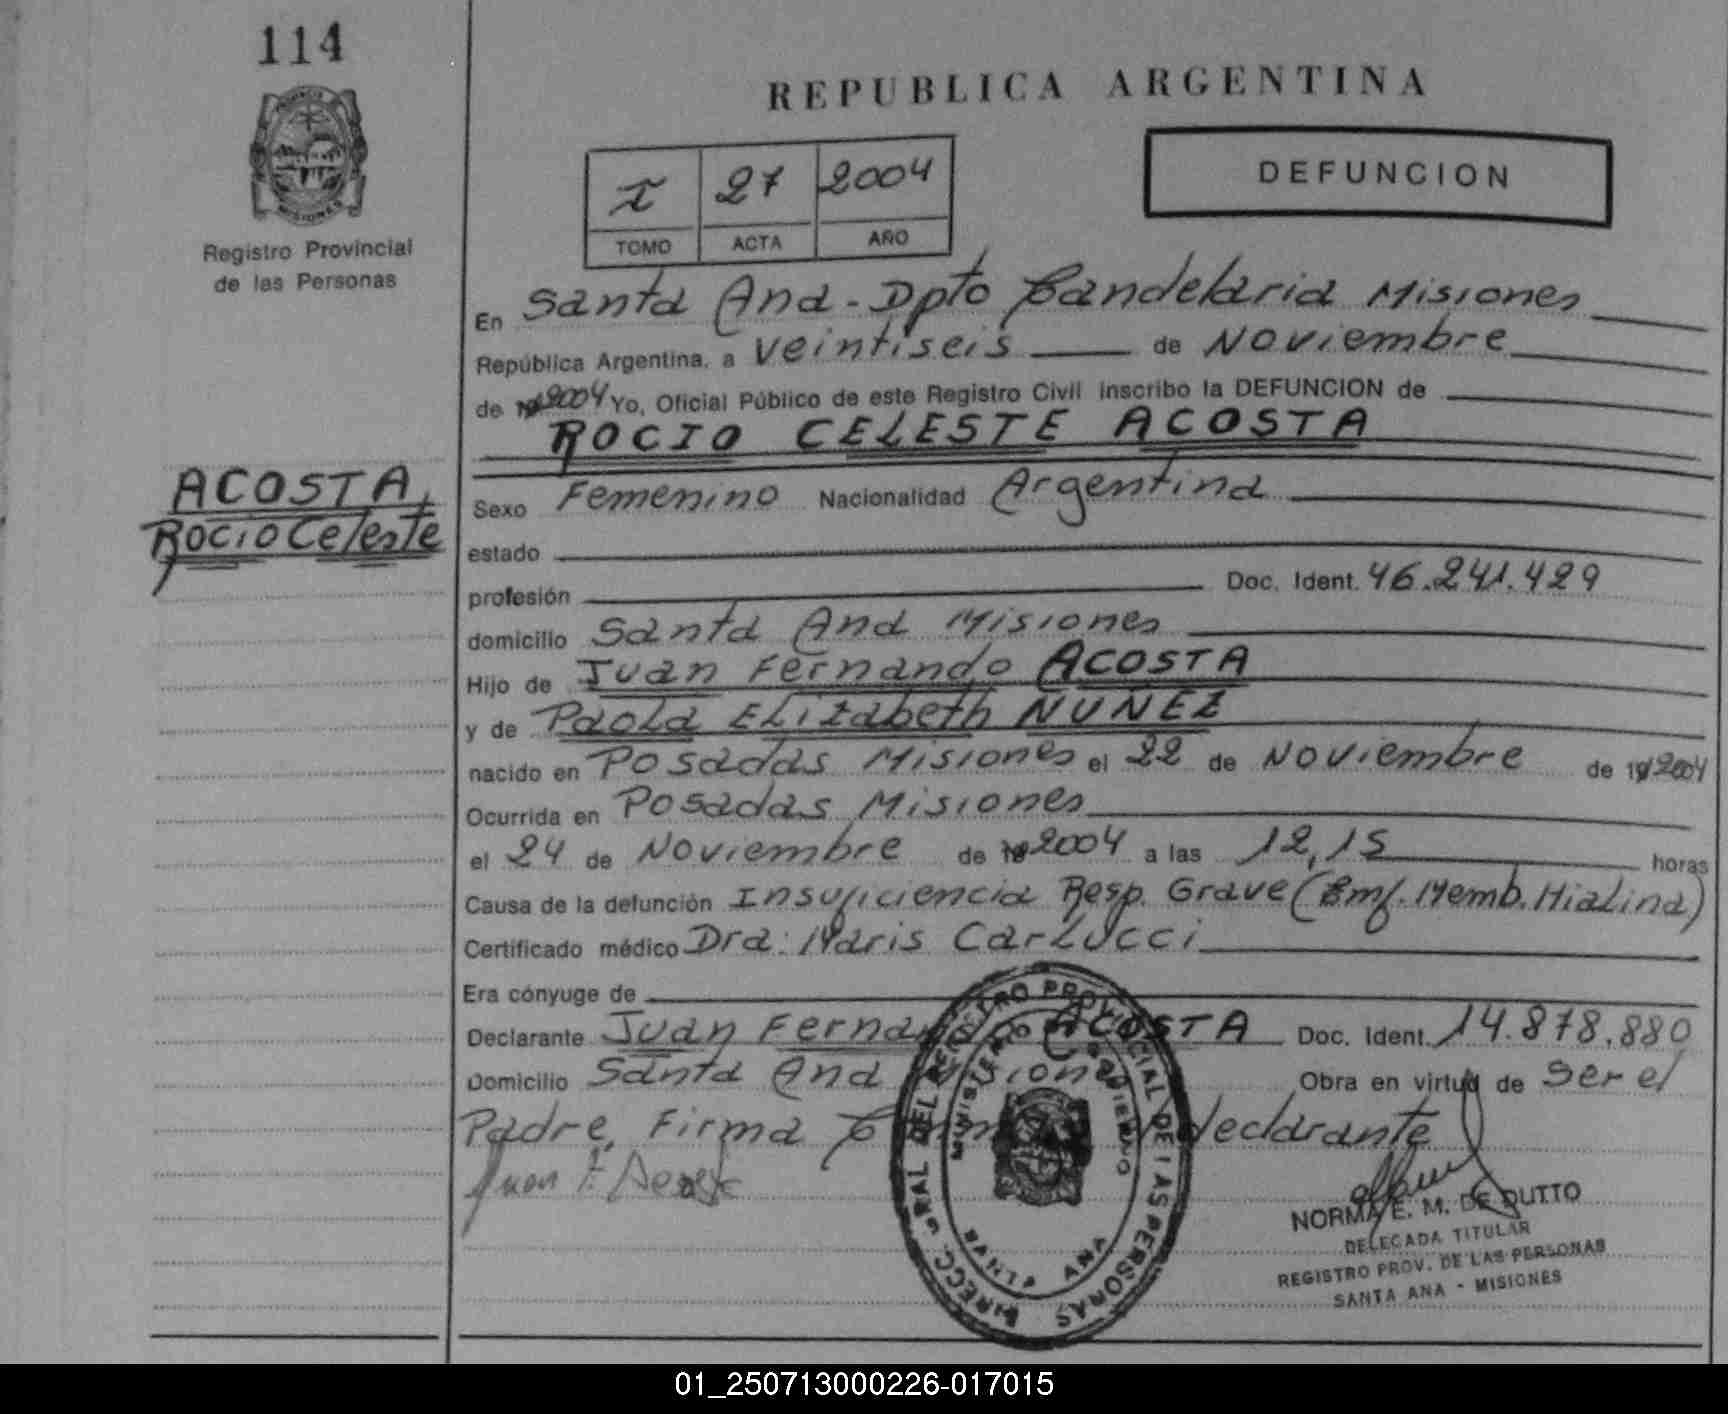 114
PROVINCIA DE
MISIONES
Registro Provincial
de las Personas
REPUBLICA ARGENTINA
I 27 2004
TOMO ACTA AÑO
DEFUNCION
En Santa Ana - Dpto Candelaria Misiones
República Argentina, a veintiseis de Noviembre
de 19 2004 Yo, Oficial Público de este Registro Civil inscribo la DEFUNCION de
ROCIO CELESTE ACOSTA
ACOSTA,
Rocio Celeste
Sexo Femenino Nacionalidad Argentina
estado
profesión Doc. Ident. 46.241.429
domicilio Santa Ana Misiones
Hijo de Juan Fernando ACOSTA
y de Paola Elizabeth NUÑEZ
nacido en Posadas Misiones el 22 de Noviembre de 19 2004
Ocurrida en Posadas Misiones
el 24 de Noviembre de 19 2004 a las 12,15 horas
Causa de la defunción Insuficiencia Resp. Grave (Emf. Memb. Hialina)
Certificado médico Dra: Maris Carlucci
Era cónyuge de
Declarante Juan Fernando ACOSTA Doc. Ident. 14.878.880
Domicilio Santa Ana Misiones Obra en virtud de Ser el
Padre, Firma declarante
Juan F. Acosta
DIRECC. GRAL DEL REGISTRO PROVINCIAL DE LAS PERSONAS
MINISTERIO DE GOBIERNO
SANTA ANA
NORMA E. M. DE DUTTO
DELEGADA TITULAR
REGISTRO PROV. DE LAS PERSONAS
SANTA ANA - MISIONES
01_250713000226-017015